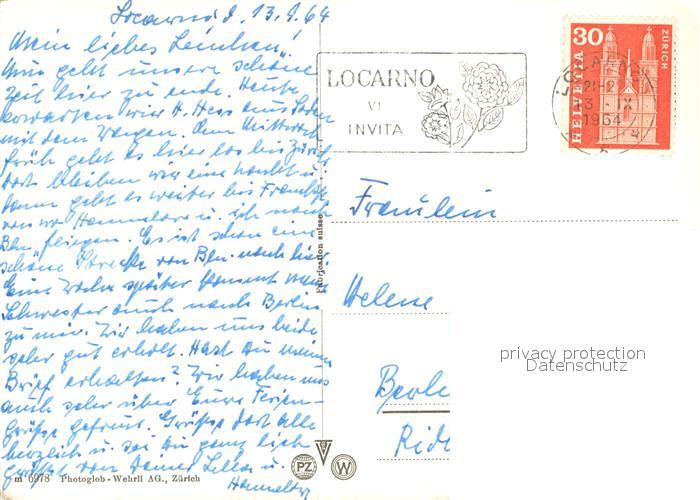 Locarno d. 13.9.64
Mein liebes Lenchen!
Nun geht unsere schöne
Zeit hier zu ende. Heute
erwarten wir H. Hess aus Baden
mit dem Wagen. Am Mittwoch
früh geht es hier los bis Zürich
dort bleiben wir eine Nacht u.
dann geht es weiter bis Frankf.
von wo Hannelore u. ich nach
Bln. fliegen. Es ist schon eine
schöne Strecke von Bln. nach hier.
Eine Woche später kommt meine
Schwester auch nach Berlin
zu mir. Wir haben uns beide
sehr gut erholt. Hast du meinen
Brief erhalten? Wir haben uns
auch sehr über Eure Ferien-
grüße gefreut. Grüße dort alle
herzlich u. sei du ganz lieb
gegrüßt von Deiner u.
Hannelore
m 6978 Photoglob-Wehrli AG., Zürich
Fabrication suisse
PZ
W
LOCARNO
VI
INVITA
30
HELVETIA
ZÜRICH
LOCARNO
1964
Fräulein
Helene
Berli
privacy protection
Datenschutz